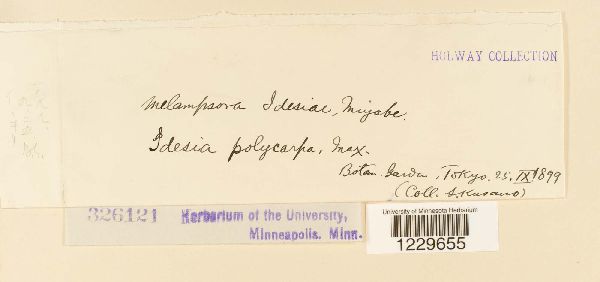 HOLWAY COLLECTION
Melampsora Idesiae, Miyabe.
Idesia polycarpa, Max.
Botan. Garden, Tokyo. 25. IX 1899
(Coll. S. Kusano)
326121
Herbarium of the University,
Minneapolis. Minn.
University of Minnesota Herbarium
1229655